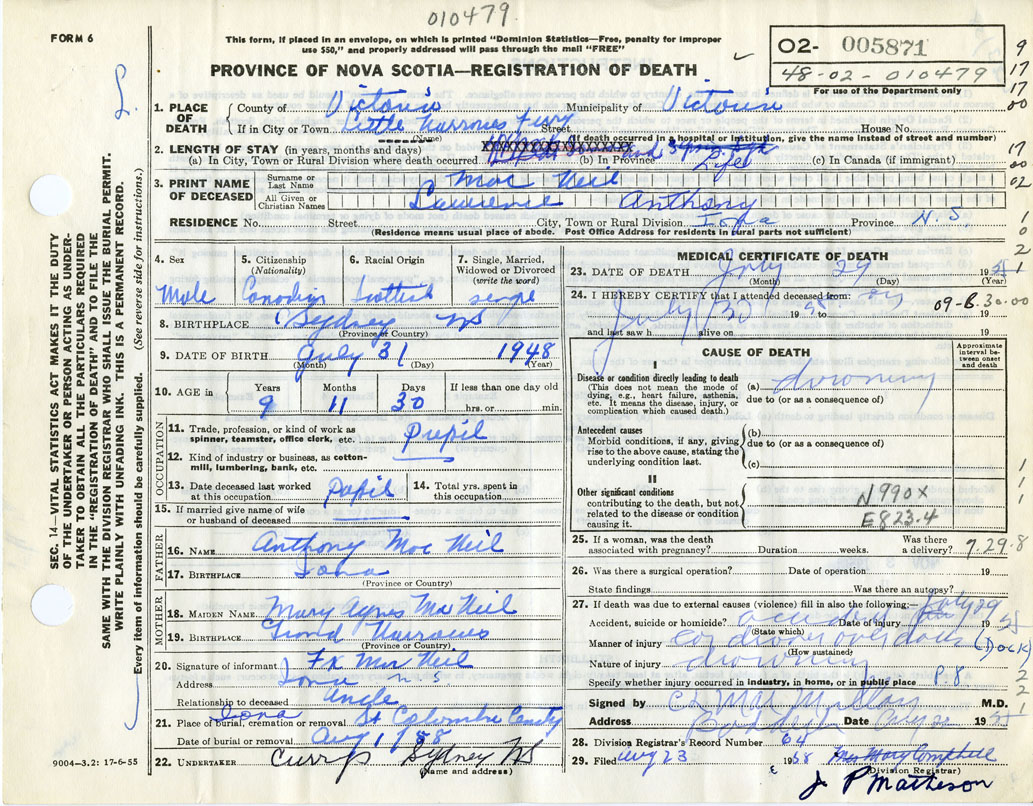 010479.
FORM 6
This form, if placed in an envelope, on which is printed "Dominion Statistics—Free, penalty for improper
use $50," and properly addressed will pass through the mail "FREE"
PROVINCE OF NOVA SCOTIA—REGISTRATION OF DEATH
02- 005871
48-02-010479
For use of the Department only
9
17
17
00
17
00
02
0
2
1
1
1
1
8
2
2
1
SEC. 14—VITAL STATISTICS ACT MAKES IT THE DUTY
OF THE UNDERTAKER OR PERSON ACTING AS UNDER-
TAKER TO OBTAIN ALL THE PARTICULARS REQUIRED
IN THE "REGISTRATION OF DEATH" AND TO FILE THE
SAME WITH THE DIVISION REGISTRAR WHO SHALL ISSUE THE BURIAL PERMIT.
WRITE PLAINLY WITH UNFADING INK. THIS IS A PERMANENT RECORD.
Every item of information should be carefully supplied. (See reverse side for instructions.)
1. PLACE OF DEATH
County of Victoria Municipality of Victoria
If in City or Town Little Narrows Ferry Street House No.
(Name) (If death occurred in a hospital or institution, give the name instead of street and number)
2. LENGTH OF STAY (in years, months and days)
(a) In City, Town or Rural Division where death occurred (b) In Province Life (c) In Canada (if immigrant)
3. PRINT NAME OF DECEASED
Surname or Last Name Mac Neil
All Given or Christian Names Lawrence Anthony
RESIDENCE No. Street City, Town or Rural Division Iona Province N.S.
(Residence means usual place of abode. Post Office Address for residents in rural parts not sufficient)
4. Sex
Male
5. Citizenship
(Nationality)
Canadian
6. Racial Origin
Scottish
7. Single, Married,
Widowed or Divorced
(write the word)
single
8. BIRTHPLACE Sydney NS
(Province or Country)
9. DATE OF BIRTH July 31 1948
(Month) (Day) (Year)
10. AGE in
Years Months Days If less than one day old
9 11 30 hrs. or min.
OCCUPATION
11. Trade, profession, or kind of work as
spinner, teamster, office clerk, etc. Pupil
12. Kind of industry or business, as cotton-
mill, lumbering, bank, etc.
13. Date deceased last worked
at this occupation Pupil
14. Total yrs. spent in
this occupation
15. If married give name of wife
or husband of deceased
FATHER
16. NAME Anthony Mac Neil
17. BIRTHPLACE Iona
(Province or Country)
MOTHER
18. MAIDEN NAME Mary Agnes Mac Neil
19. BIRTHPLACE Grand Narrows
(Province or Country)
20. Signature of informant Fx Mac Neil
Address Iona N.S
Relationship to deceased Uncle
21. Place of burial, cremation or removal Iona St Columba
Date of burial or removal Aug 1 1958
22. UNDERTAKER Curry's Sydney NS
(Name and address)
9004-3.2: 17-6-55
MEDICAL CERTIFICATE OF DEATH
23. DATE OF DEATH July 29 19
(Month) (Day) (Year)
24. I HEREBY CERTIFY that I attended deceased from:
July 30 19 to 09-B.30.00
and last saw h alive on 19
CAUSE OF DEATH
Approximate
interval be-
tween onset
and death
I
Disease or condition directly leading to death
(This does not mean the mode of
dying, e.g., heart failure, asthenia,
etc. It means the disease, injury, or
complication which caused death.)
(a) drowning
due to (or as a consequence of)
Antecedent causes
Morbid conditions, if any, giving
rise to the above cause, stating the
underlying condition last.
(b)
due to (or as a consequence of)
(c)
II
Other significant conditions
contributing to the death, but not
related to the disease or condition
causing it.
N990X
E823.4
25. If a woman, was the death
associated with pregnancy? Duration weeks. Was there
a delivery? 7.29.8
26. Was there a surgical operation? Date of operation 19
State findings Was there an autopsy?
27. If death was due to external causes (violence) fill in also the following:—
Accident, suicide or homicide? accident Date of injury July 29 19
(State which)
Manner of injury car drove over dock (Dock)
(How sustained)
Nature of injury drowning
Specify whether injury occurred in industry, in home, or in public place P.8.
Signed by M.D.
Address Date 19
28. Division Registrar's Record Number 64
29. Filed Aug 23 1958 Mrs Mary Campbell
(Division Registrar)
J P Matheson